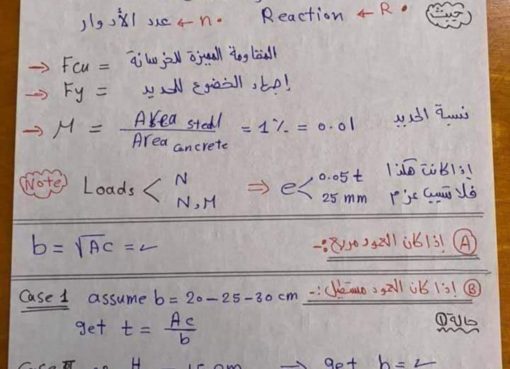 حيث • R → Reaction • n → عدد الأدوار
→ Fcu = المقاومة المميزة للخرسانة
→ Fy = إجهاد الخضوع للحديد
→ M = Area steel / Area concrete = 1% = 0.01 نسبة الحديد
Note Loads < N / N,M ⇒ e < 0.05 t / 25 mm إذا كانت هكذا فلا تسبب عزم
Ⓐ إذا كان العمود مربع :- b = √Ac = ✓
Ⓑ إذا كان العمود مستطيل :-
حالة ① Case 1 assume b = 20 - 25 - 30 cm
get t = Ac / b
get b = ✓